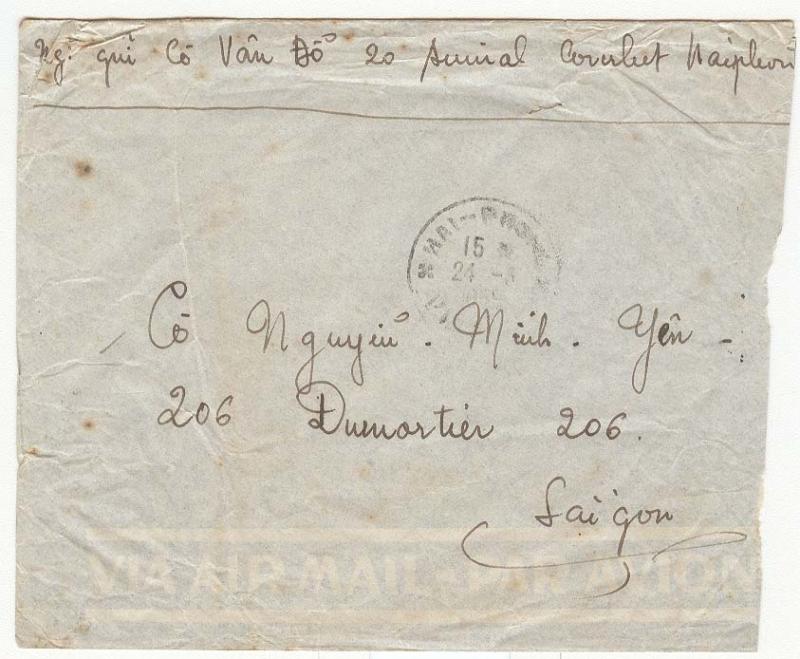 Ng: gửi Cô Vân Đồ 20 Amiral Courbet Haiphon
HAI-PHO
15
24 -
Cô Nguyễn . Minh . Yên -
206 Dumortier 206.
Saigon
VIA AIR MAIL - PAR AVION